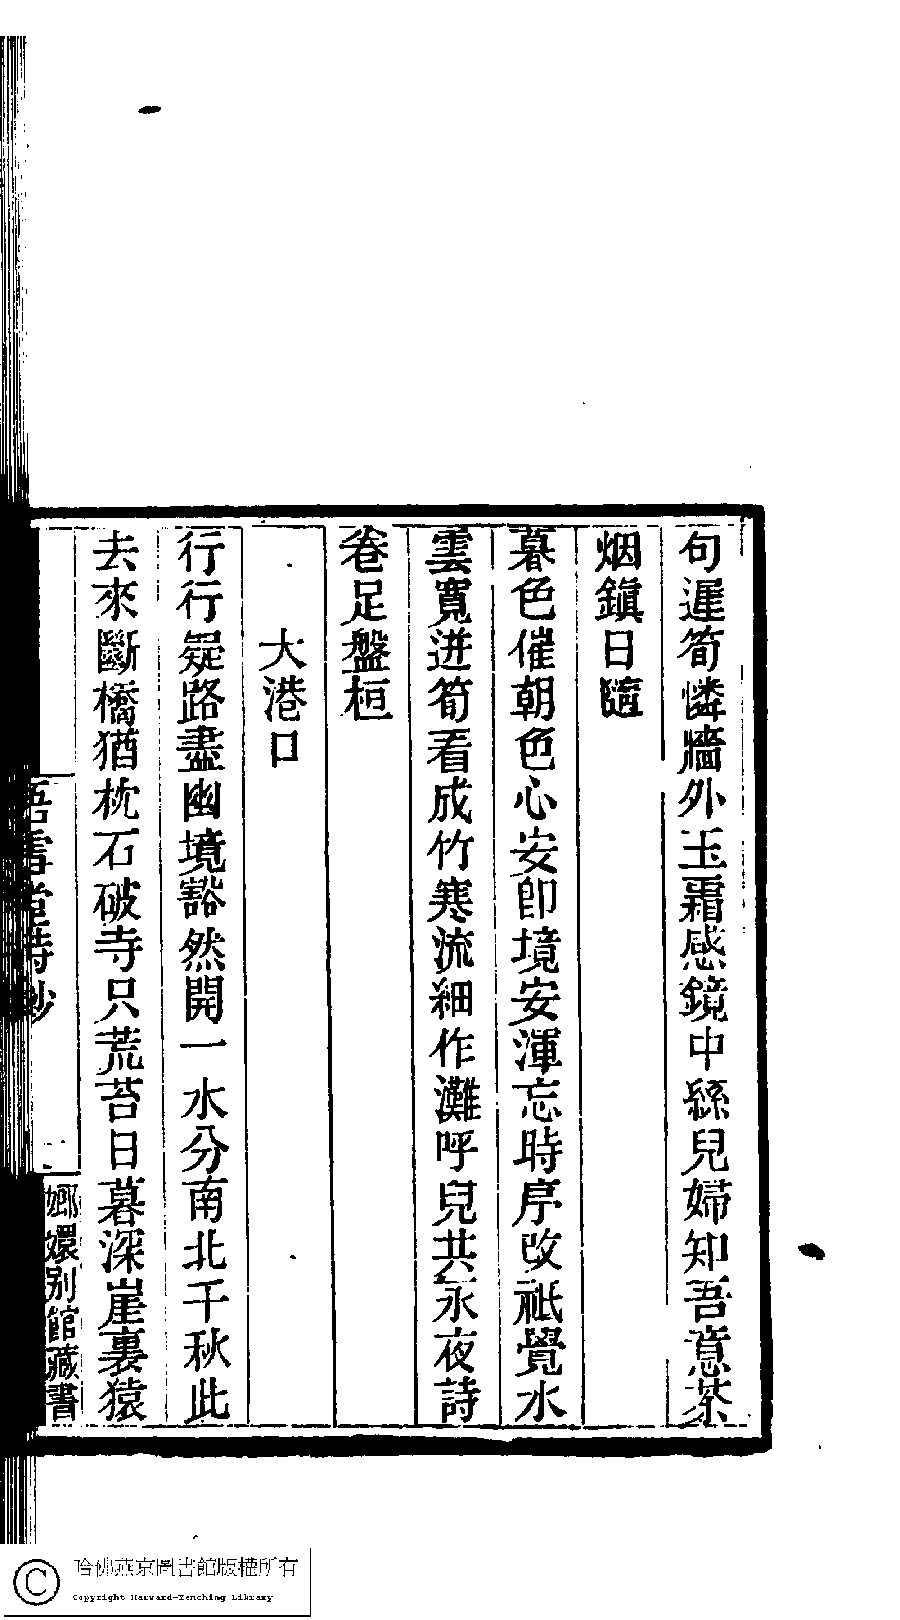 句遲筍憐牆外玉霜感鏡中絲兒婦知吾意茶
烟鎭日隨
暮色催朝色心安卽境安渾忘時序改祇覺水
雲寬迸筍看成竹寒流細作灘呼兒共永夜詩
卷足盤桓
大港口
行行疑路盡幽境豁然開一水分南北千秋此
去來斷橋猶枕石破寺只荒苔日暮深崖裏猿
雪堂詩鈔
嫏嬛别館藏書
哈佛燕京圖書館版權所有
Copyright Harvard-Yenching Library